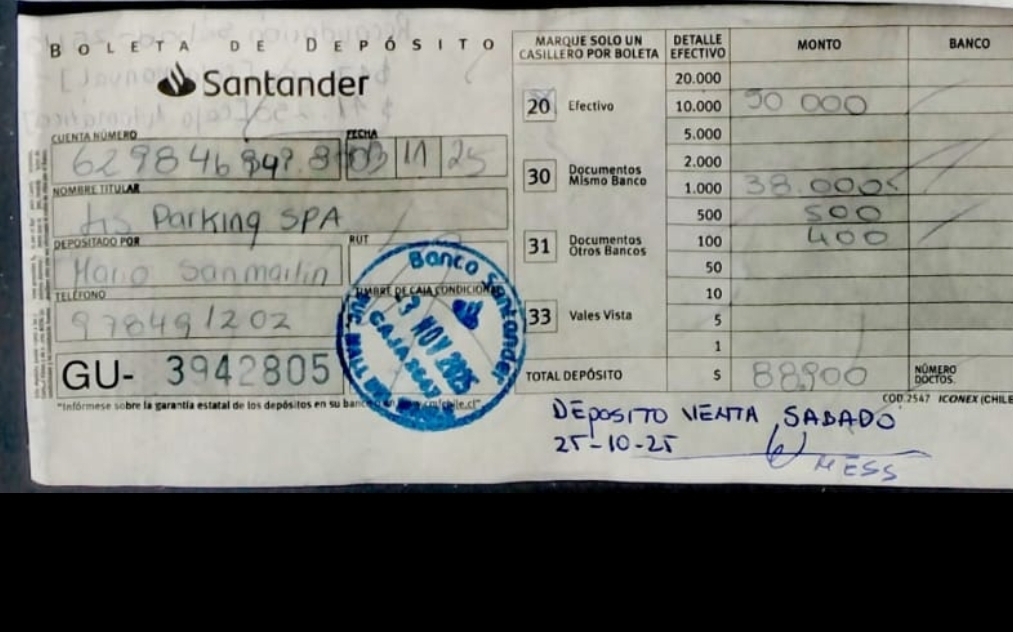 BOLETA DE DEPÓSITO
Santander
CUENTA NÚMERO
FECHA
03 11 25
NOMBRE TITULAR
Parking SPA
DEPOSITADO POR
RUT
Mario Sanmartin
TELÉFONO
978491202
GU- 3942805
TIMBRE DE CAJA CONDICIONAL
Banco Santander
3 NOV 2025
SUC. MALL
"Infórmese sobre la garantía estatal de los depósitos en su banco o en www.cmfchile.cl"
MARQUE SOLO UN CASILLERO POR BOLETA
20 Efectivo
30 Documentos Mismo Banco
31 Documentos Otros Bancos
33 Vales Vista
DETALLE EFECTIVO MONTO BANCO
20.000
10.000 50 000
5.000
2.000
1.000 38.000
500 500
100 400
50
10
5
1
TOTAL DEPÓSITO $ 88,900 NÚMERO DOCTOS.
COD.2547 ICONEX (CHILE
DEPOSITO VENTA SABADO
25-10-25
MESS